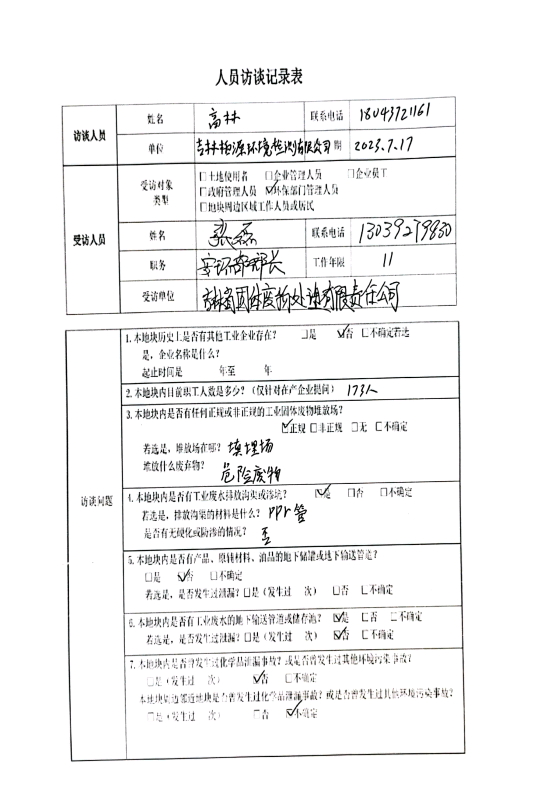 人员访谈记录表
访谈人员
姓名 高林 联系电话 18043721161
单位 吉林 源环境检测有限公司 期 2023.7.17
受访人员
受访对象类型
□土地使用者 □企业管理人员 □企业员工
□政府管理人员 ☑环保部门管理人员
□地块周边区域工作人员或居民
姓名 张磊 联系电话 13039279830
职务 安环部部长 工作年限 11
受访单位 固体废物处理有限责任公司
访谈问题
1.本地块历史上是否有其他工业企业存在? □是 ☑否 □不确定若选
是,企业名称是什么?
起止时间是 年至 年
2.本地块内目前职工人数是多少?(仅针对在产企业提问) 173人
3.本地块内是否有任何正规或非正规的工业固体废物堆放场?
☑正规 □非正规 □无 □不确定
若选是,堆放场在哪? 填埋场
堆放什么废弃物? 危险废物
4.本地块内是否有工业废水排放沟渠或渗坑? ☑是 □否 □不确定
若选是,排放沟渠的材料是什么? PPr管
是否有无硬化或防渗的情况? 否
5.本地块内是否有产品、原辅材料、油品的地下储罐或地下输送管道?
□是 ☑否 □不确定
若选是,是否发生过泄漏?□是(发生过 次) □否 □不确定
6.本地块内是否有工业废水的地下输送管道或储存池? ☑是 □否 □不确定
若选是,是否发生过泄漏?□是(发生过 次) ☑否 □不确定
7.本地块内是否曾发生过化学品泄漏事故?或是否曾发生过其他环境污染事故?
□是(发生过 次) ☑否 □不确定
本地块周边邻近地块是否曾发生过化学品泄漏事故?或是否曾发生过其他环境污染事故?
□是(发生过 次) □否 ☑不确定